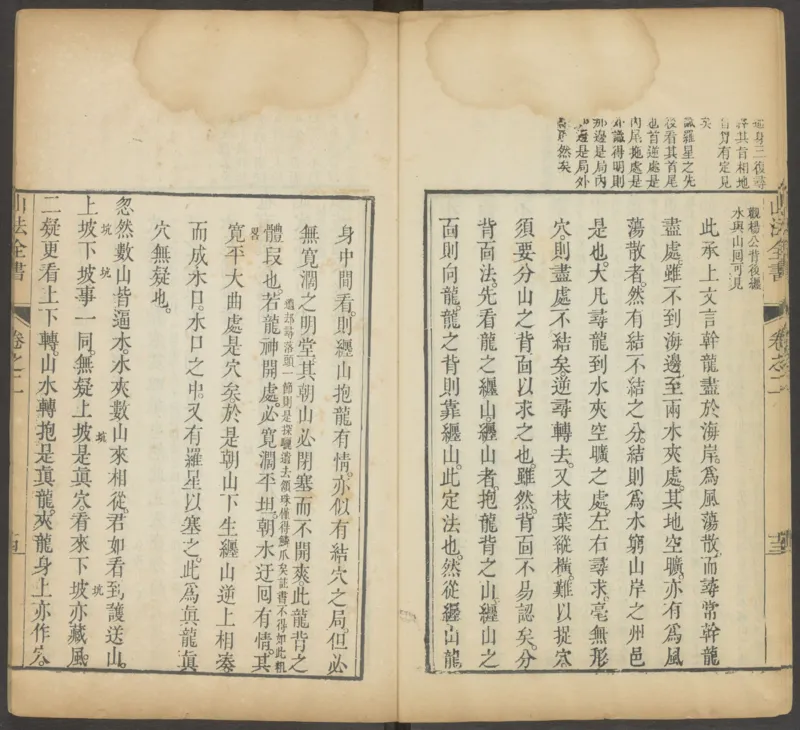 身三後尋
其首相地
有定見
矣
羅星之先
後看其首尾
也首逆處是
內尾拖處是
外識得明則
那邊是局內
邊是局外
然矣
觀楊公背後纏
水與山回可見
山法全書 卷之二
此承上文言幹龍盡於海岸。爲風蕩散。而尋常幹龍
盡處。雖不到海邊。至兩水夾處。其地空曠。亦有爲風
蕩散者。然有結不結之分。結則爲水窮山岸之州邑
是也。大凡尋龍到水夾空曠之處。左右尋求。毫無形
穴。則盡處不結矣。逆尋轉去。又枝葉縱橫。難以捉穴。
須要分山之背面以求之也。雖然。背面不易認矣。分
背面法。先看龍之纏山。纏山者。抱龍背之山。纏山之
面則向龍。龍之背則靠纏山。此定法也。然從纏山龍
身中間看。則纏山抱龍有情。亦似有結穴之局。但必
無寬濶之明堂。其朝山必閉塞而不開爽。此龍背之
體段也。若龍神開處。必寬濶平坦。朝水迂囘有情。其
尋落頭一節則是探驪遺去頷珠僅得鱗爪矣註書不得如此粗畧
寬平大曲處是穴矣。於是朝山下生纏山逆上相湊
而成水口。水口之中。又有羅星以塞之。此爲眞龍眞
穴無疑也。
忽然數山皆逼水。水夾數山來相從。君如看到護送山。
坑 坑 坑 坑
上坡下坡事一同。無疑上坡是眞穴。看來下坡亦藏風。
二疑更看上下轉。山水轉抱是眞龍。夾龍身上亦作穴。
山法全書 卷之二 五